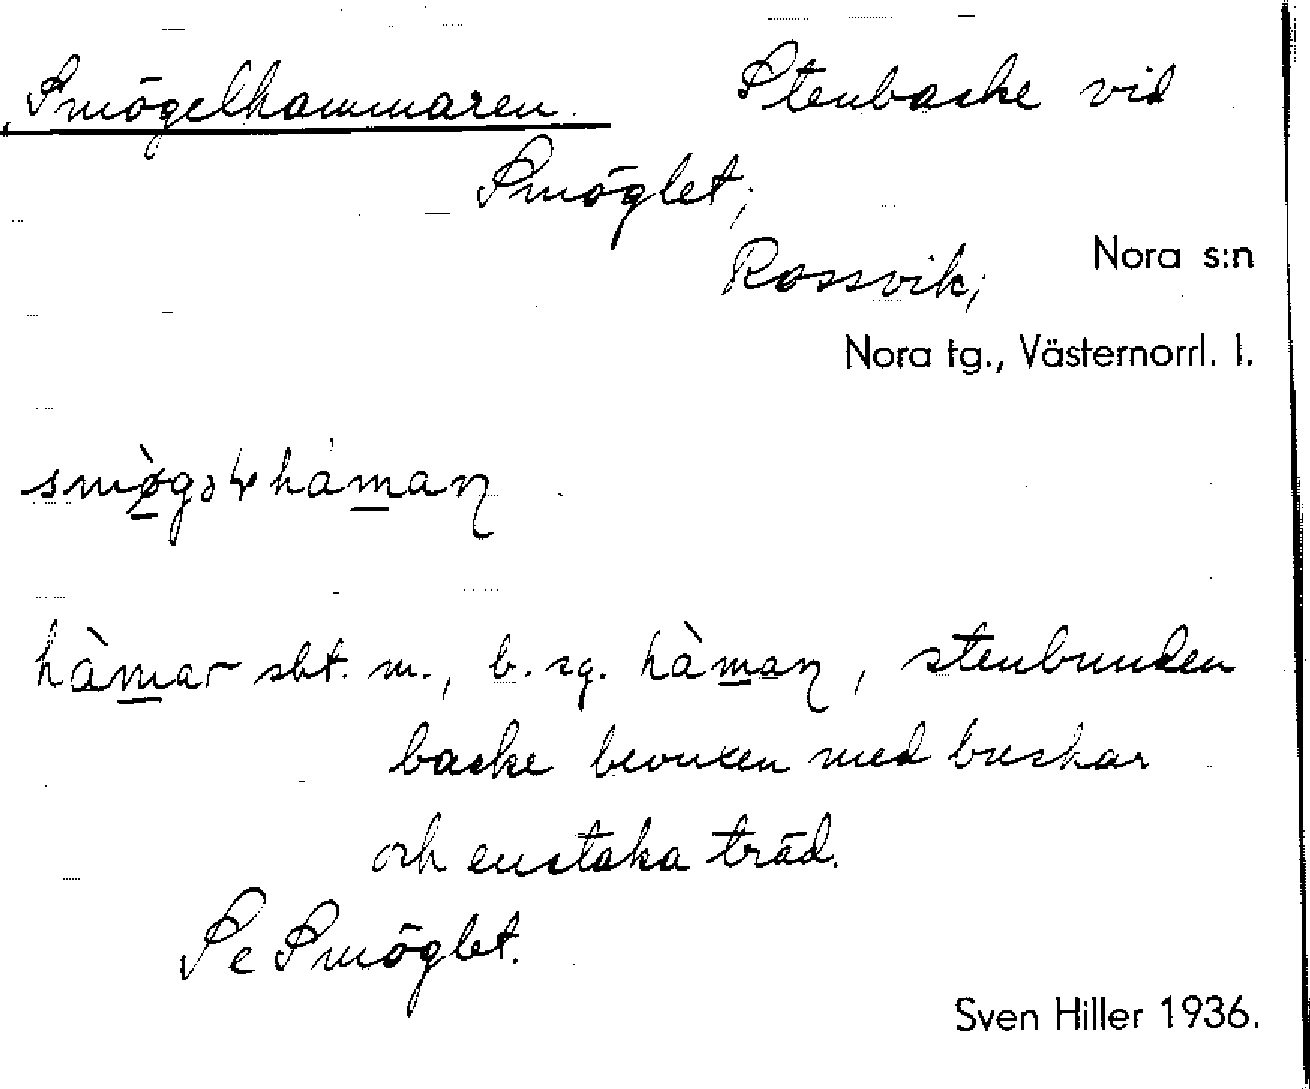 Smögelhammaren. Stenbacke vid
Smöglet;
Rossvik; Nora s:n
Nora tg., Västernorrl. l.
smø̀gəɬhàman
hàmar sbt. m., b. sg. hàman, stenbunden
backe bevuxen med buskar
och enstaka träd.
Se Smöglet.
Sven Hiller 1936.